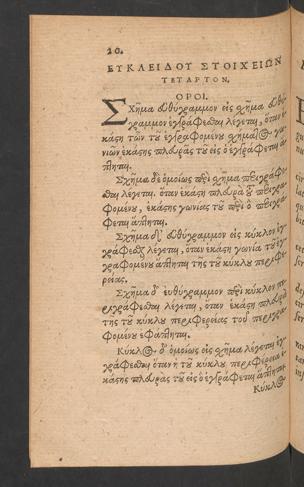 20.
ΕΥΚΛΕΙΔΟΥ ΣΤΟΙΧΕΙΩΝ
ΤΕΤΑΡΤΟΝ.
ΟΡΟΙ.
Σχῆμα εὐθύγραμμον εἰς σχῆμα εὐθύ
γραμμον ἐγγράφεσθαι λέγεται, ὅταν ἑ
κάστη τῶν τοῦ ἐγγραφομένου σχήματος γω
νιῶν ἑκάστης πλευρᾶς τοῦ εἰς ὃ ἐγγράφεται ἅ
πτηται.
Σχῆμα δὲ ὁμοίως περὶ σχῆμα περιγράφε
σθαι λέγεται. ὅταν ἑκάστη πλευρὰ τοῦ περιγρα
φομένου, ἑκάστης γωνίας τοῦ περὶ ὃ περιγρά
φεται ἅπτηται.
Σχῆμα δ' εὐθύγραμμον εἰς κύκλον ἐγ
γράφεσθαι λέγεται, ὅταν ἑκάστη γωνία τοῦ ἐγ
γραφομένου ἅπτηται τῆς τοῦ κύκλου περιφε
ρείας.
Σχῆμα δ' εὐθύγραμμον περὶ κύκλον πε
ριγράφεσθαι λέγεται, ὅταν ἑκάστη πλευρὰ
τῆς τοῦ κύκλου περιφερείας τοῦ περιγρα
φομένου ἐφάπτηται.
Κύκλος δ' ὁμοίως εἰς σχῆμα λέγεται ἐγ
γράφεσθαι ὅταν ἡ τοῦ κύκλου περιφέρεια ἑ
κάστης πλευρᾶς τοῦ εἰς ὃ ἐγγράφεται ἅπτηται.
Κύκλος